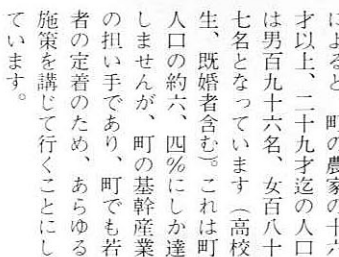 によると 町の農家の十六
才以上、二十九才迄の人口
は男百九十六名、女百八十
七名となっています（高校
生、既婚者含む）。これは町
人口の約六、四％にしか達
しませんが、町の基幹産業
の担い手であり、町でも若
者の定着のため、あらゆる
施策を講じて行くことにし
ています。